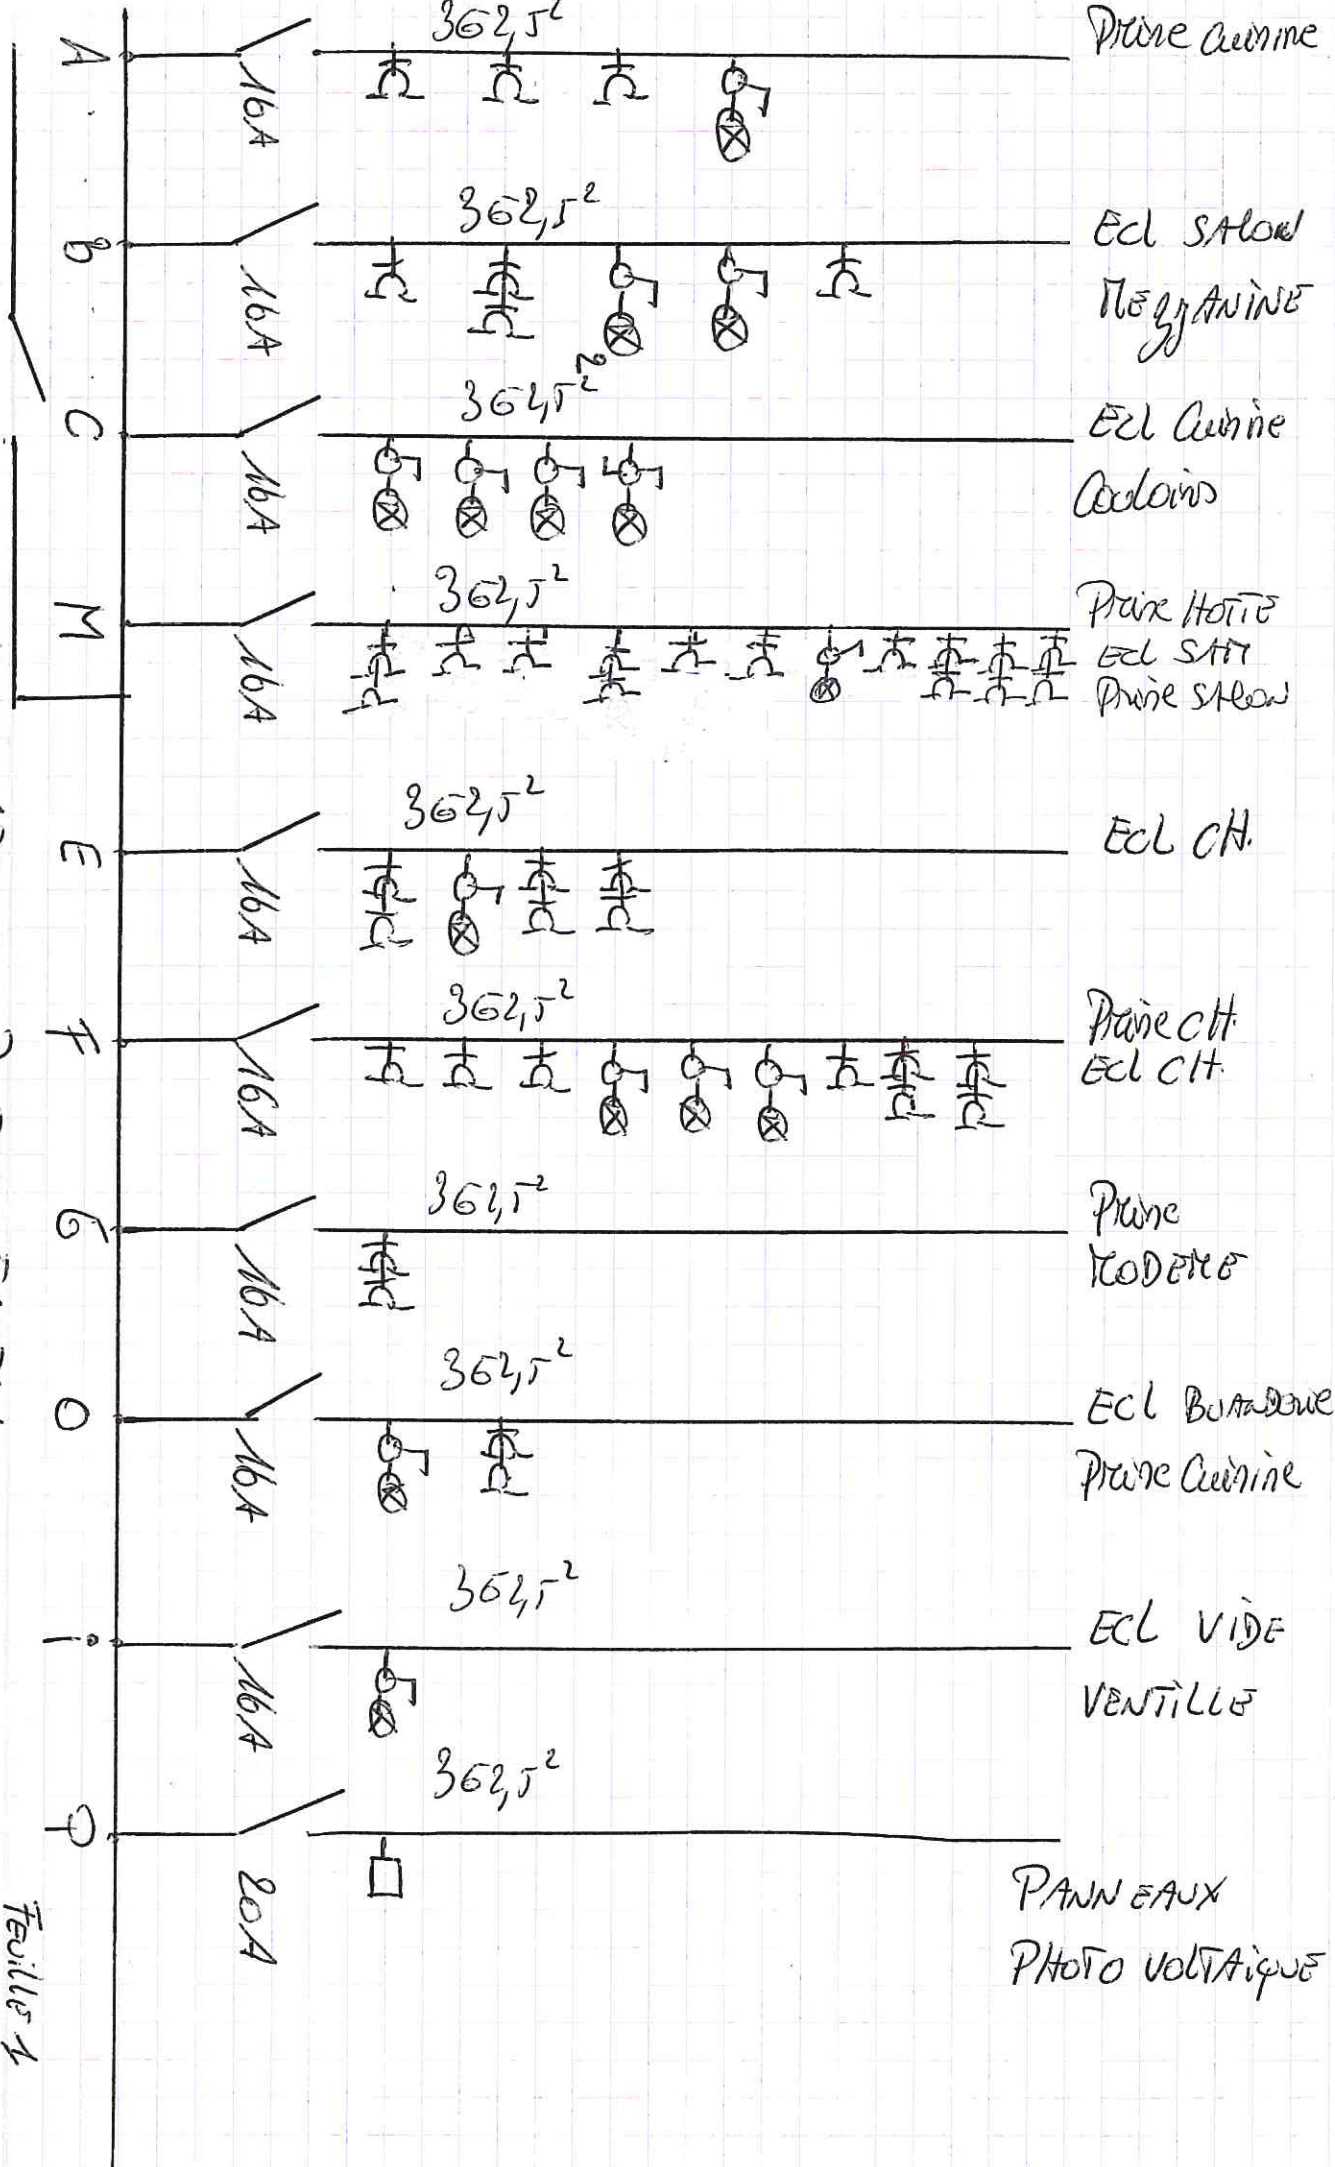 A
16A
3G2,5²
Prise Cuisine
B
16A
3G2,5²
Ecl SALON
MEZZANINE
C
16A
3G2,5²
2
Ecl Cuisine
Couloirs
M
16A
3G2,5²
Prise HOTTE
Ecl SAM
Prise SALON
E
16A
3G2,5²
Ecl CH.
F
16A
3G2,5²
Prise CH.
Ecl CH.
G
16A
3G2,5²
Prise
MODEME
O
16A
3G2,5²
Ecl BUANDERIE
Prise Cuisine
i
16A
3G2,5²
ECL VIDE
VENTILLE
20A
3G2,5²
PANNEAUX
PHOTO VOLTAIQUE
Feuille 1